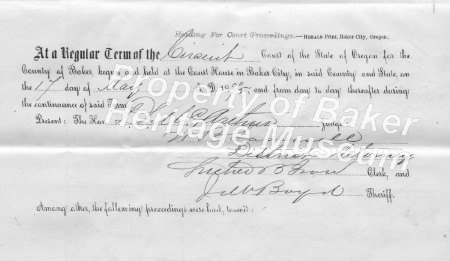 Heading For Court Proceedings.—HERALD Print, Baker City, Oregon.
At a Regular Term of the Circuit Court of the State of Oregon for the
County of Baker, begun and held at the Court House in Baker City, in said County and State, on
the 17 day of May A. D. 188 and from day to day thereafter during
the continuance of said Term
Present: The Hon. Judge,
District
Clerk, and
Boyd Sheriff.
Among other, the following proceedings were had, to-wit:
Property of Baker
Heritage Museum